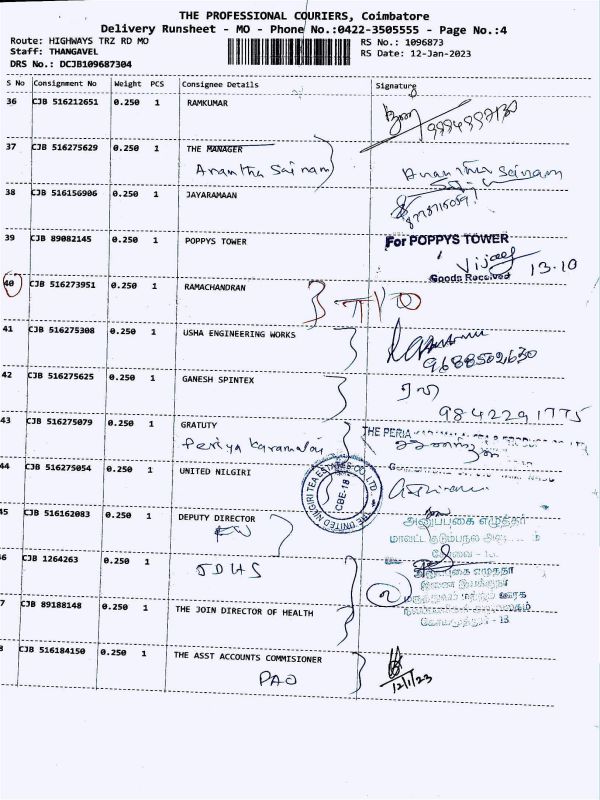 THE PROFESSIONAL COURIERS, Coimbatore
Delivery Runsheet - MO - Phone No.:0422-3505555 - Page No.:4
Route: HIGHWAYS TRZ RD MO
RS No.: 1096873
Staff: THANGAVEL
RS Date: 12-Jan-2023
DRS No.: DCJB109687304
S No Consignment No Weight PCS Consignee Details Signature
36 CJB 516212651 0.250 1 RAMKUMAR
37 CJB 516275629 0.250 1 THE MANAGER
Anantha Sairam Anantha Sairam
38 CJB 516156906 0.250 1 JAYARAMAAN
39 CJB 89082145 0.250 1 POPPYS TOWER For POPPYS TOWER
Vijay 13.10
Goods Received
40 CJB 516273951 0.250 1 RAMACHANDRAN
41 CJB 516275308 0.250 1 USHA ENGINEERING WORKS
9688502630
42 CJB 516275625 0.250 1 GANESH SPINTEX
9842291775
43 CJB 516275079 0.250 1 GRATUTY THE PERIA
Periya Karamalai
44 CJB 516275054 0.250 1 UNITED NILGIRI
THE UNITED NILGIRI TEA ESTATES CO. LTD.
CBE-18
45 CJB 516162083 0.250 1 DEPUTY DIRECTOR
அனுப்புகை எழுத்தர்
மாவட்ட குடும்பநல
6 CJB 1264263 0.250 1 JDHS
எழுத்தர்
7 CJB 89188148 0.250 1 THE JOIN DIRECTOR OF HEALTH
கோயமுத்தூர் - 18
8 CJB 516184150 0.250 1 THE ASST ACCOUNTS COMMISIONER
PAO 12/1/23